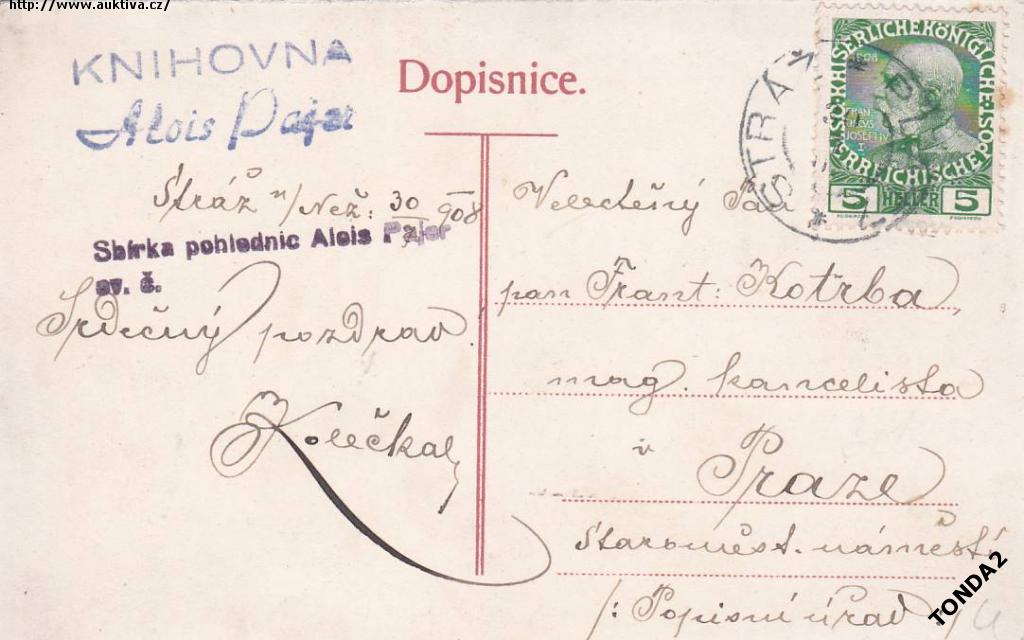 http://www.auktiva.cz/
KNIHOVNA
Alois Pajer
Dopisnice.
Stráž n/Než: 30/7 908
Sbírka pohlednic Alois Pajer
ev. č.
Srdečný pozdrav
Kolečkal
STRÁŽ
KAISERLICHE KÖNIGLICHE ÖSTERREICHISCHE POST
5 HELLER 5
Velectěný Pán
pan Frant: Kotrba,
mag. kancelista
v
Praze
Staroměst. náměstí
/: Popisní úřad
TONDA2